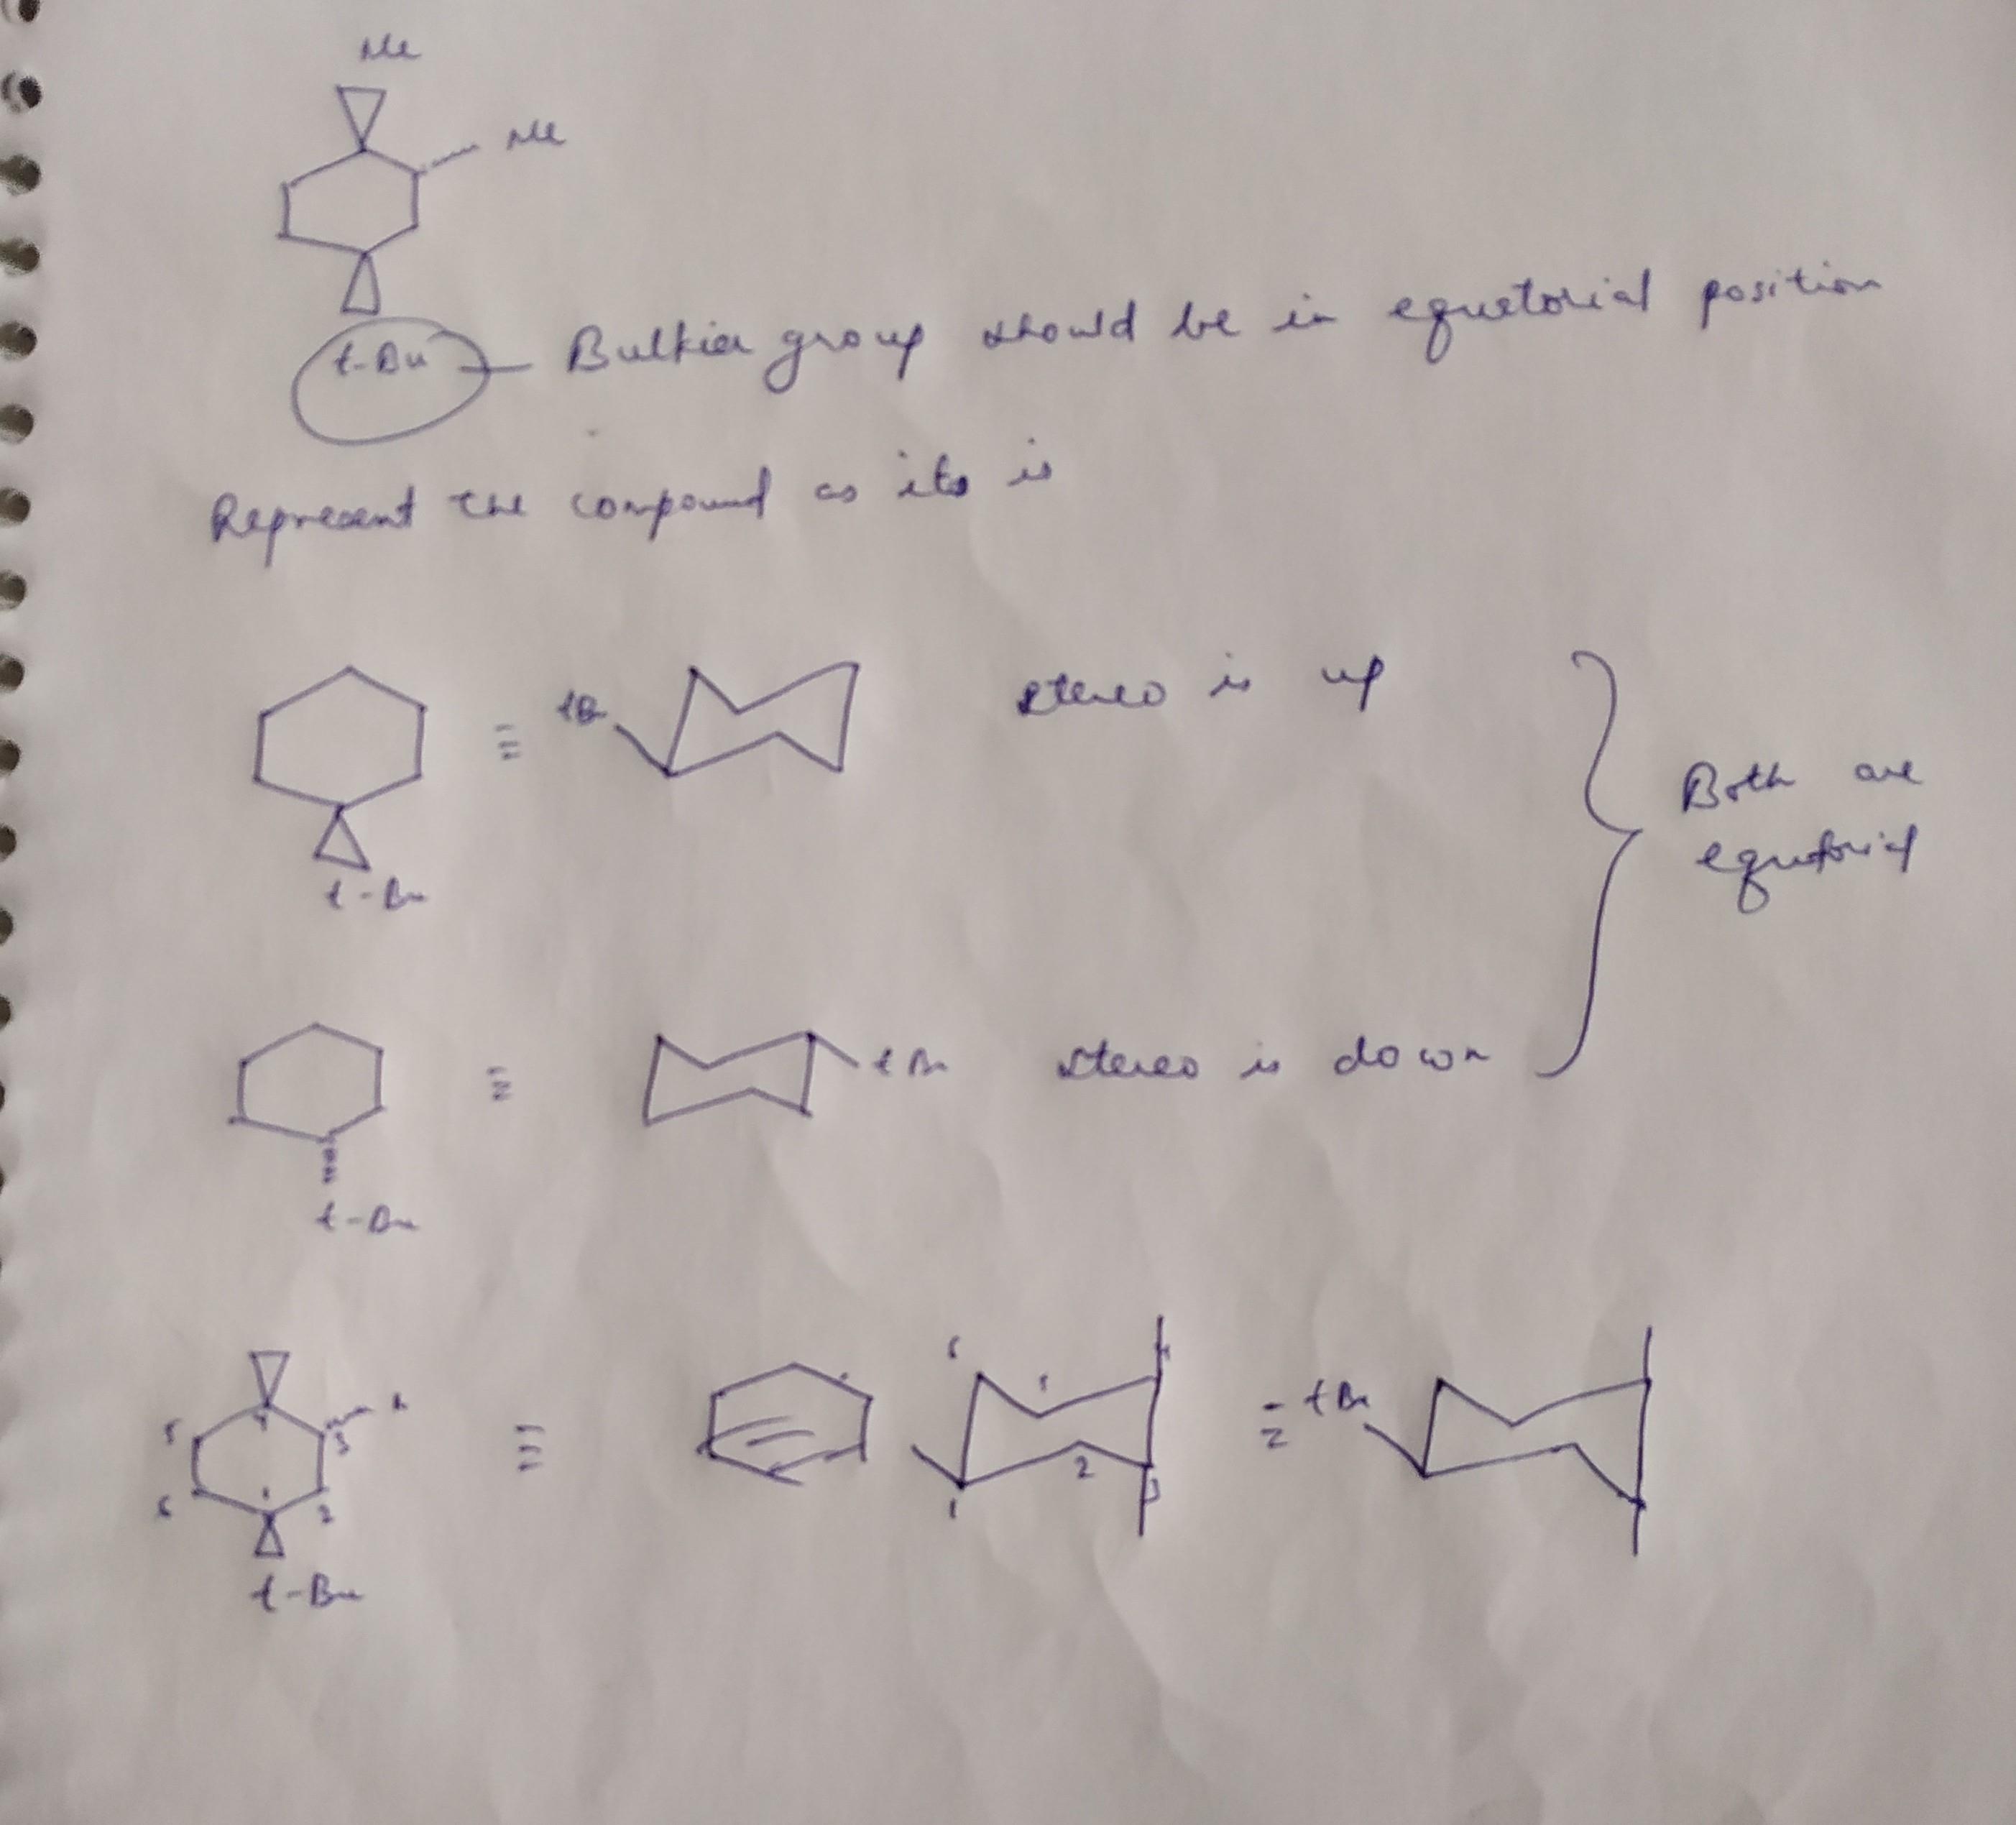 Me
Me
t-Bu — Bulkier group should be in equetorial position
Represent the compound as its is
tBu
stereo is up
t-Bu
Both are
equtorial
tBu
stereo is down
t-Bu
6
5
4
3
5
4
3
6
1
2
2
1
3
tBu
t-Bu